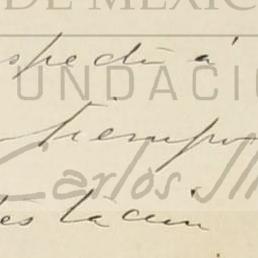 DE MÉXICO
specto á
FUNDACI
tiempo
Carlos Sl
testacion